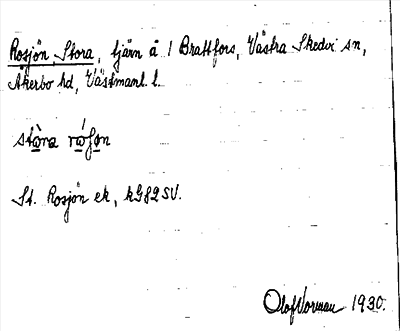 Rosjön, Stora, tjärn å 1 Brattfors, Västra Skedvi sn,
Åkerbo hd, Västmanl. l.
stòra rósjon
St. Rosjön ek, kG82SV.
Olof Vorman 1930.